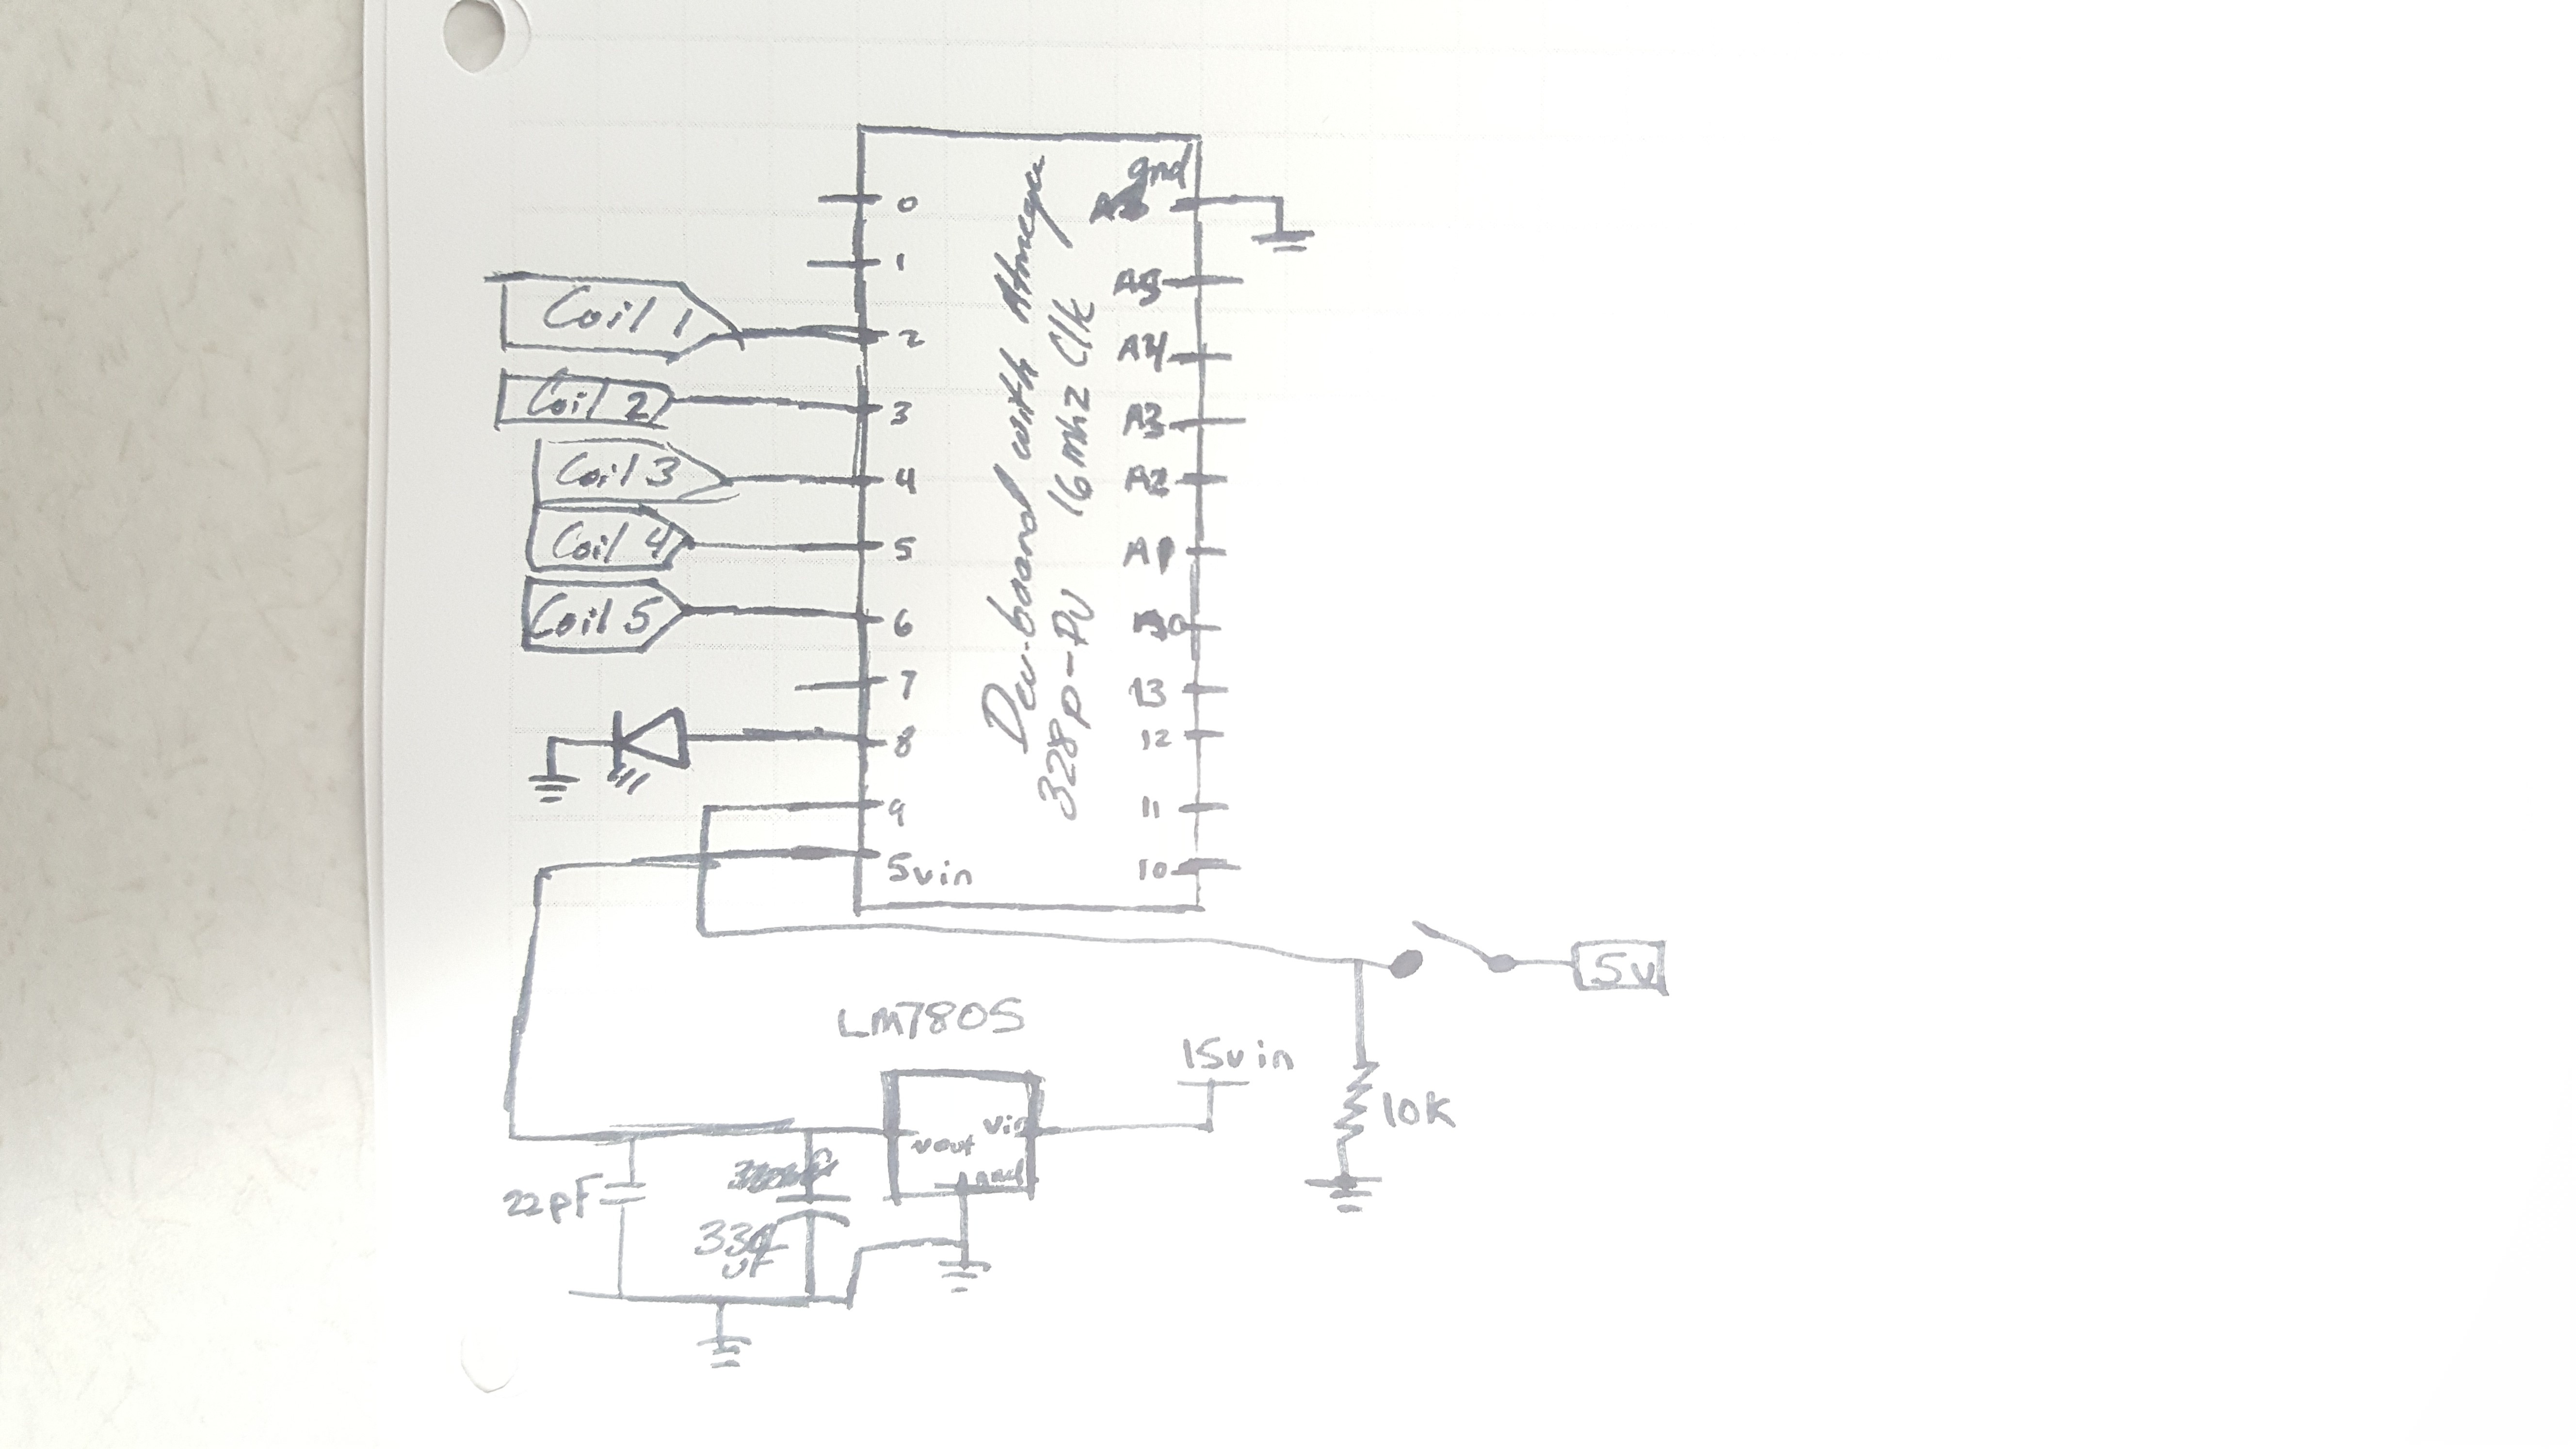 gnd
0
1
A5
Coil 1
2
A4
Coil 2
3
A3
Coil 3
4
A2
Coil 4
5
A
Coil 5
6
7
13
8
12
9
11
5vin
10
Dev-board with Atmega
328p-PU 16mhz Clk
5v
LM7805
15vin
vout
vin
gnd
10K
22pF
330
uF